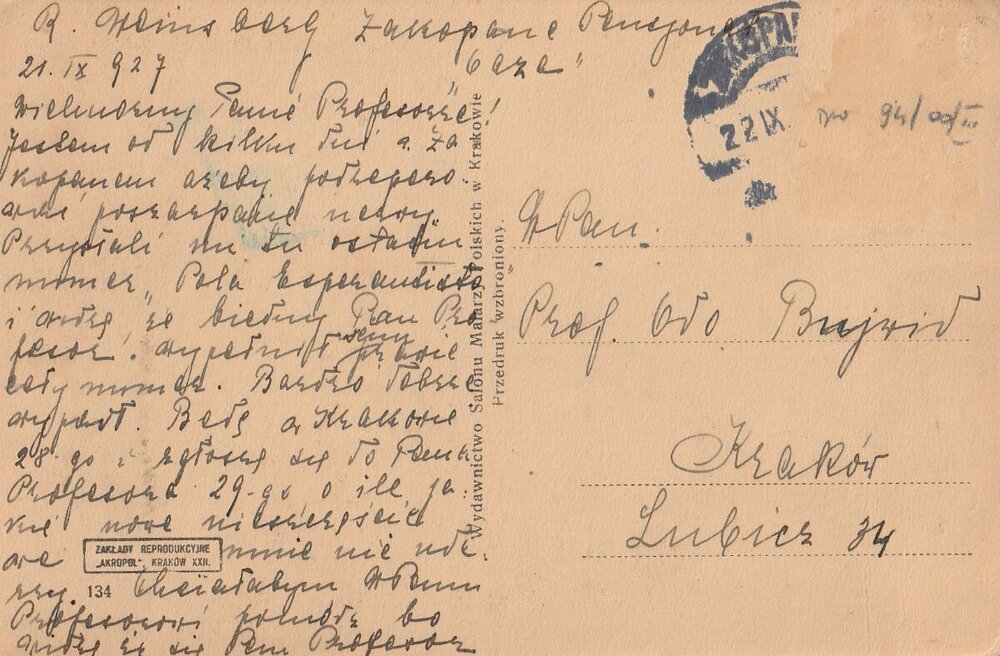 R. Weinsberg Zakopane Pensjonat
21. IX 927 "Oaza"
Wielmożny Panie Profesorze!
Jestem od kilku dni w Za
kopanem ażeby podreparo-
wać poszarpane nerwy.
Przysłali mi tu ostatni
numer "Pola Esperantisto"
i widzę, że biedny Pan Pro
fesor wypełnił prawie
cały numer. Bardzo dobrze
wypadł. Będę w Krakowie
28-go i zgłoszę się do Pana
Profesora 29-go o ile ja-
kie nowe nieszczęście
we mnie nie ude-
rzy. Chciałabym WPanu
Profesorowi pomódz bo
widzę że się Pan Profesor
ZAKŁADY REPRODUKCYJNE
„AKROPOL”, KRAKÓW XXII.
134
Wydawnictwo Salonu Malarzy Polskich w Krakowie
Przedruk wzbroniony.
22 IX
94/00/III
WPan.
Prof. Odo Bujwid
Kraków
Lubicz 34